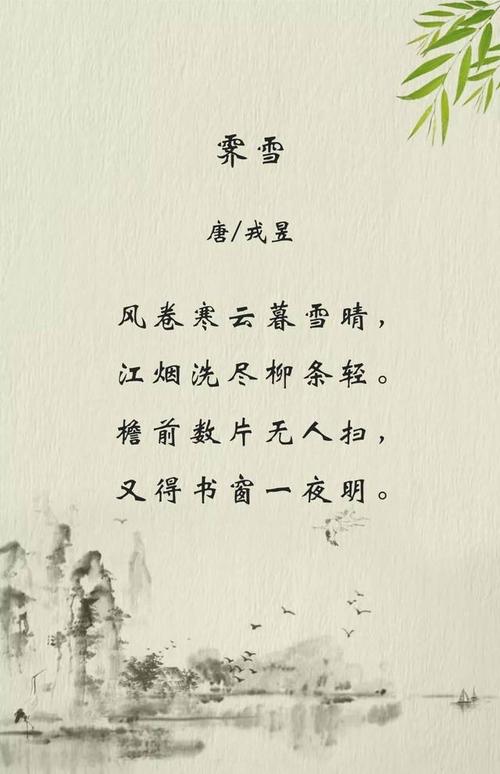 霁雪
唐/戎昱
风卷寒云暮雪晴，
江烟洗尽柳条轻。
檐前数片无人扫，
又得书窗一夜明。